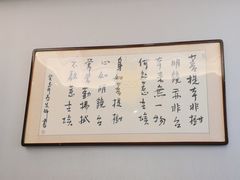 菩提本非樹
明鏡亦非台
本來無一物
何惹埃
身如菩提樹
心如明鏡台
勤拂拭
不惹埃